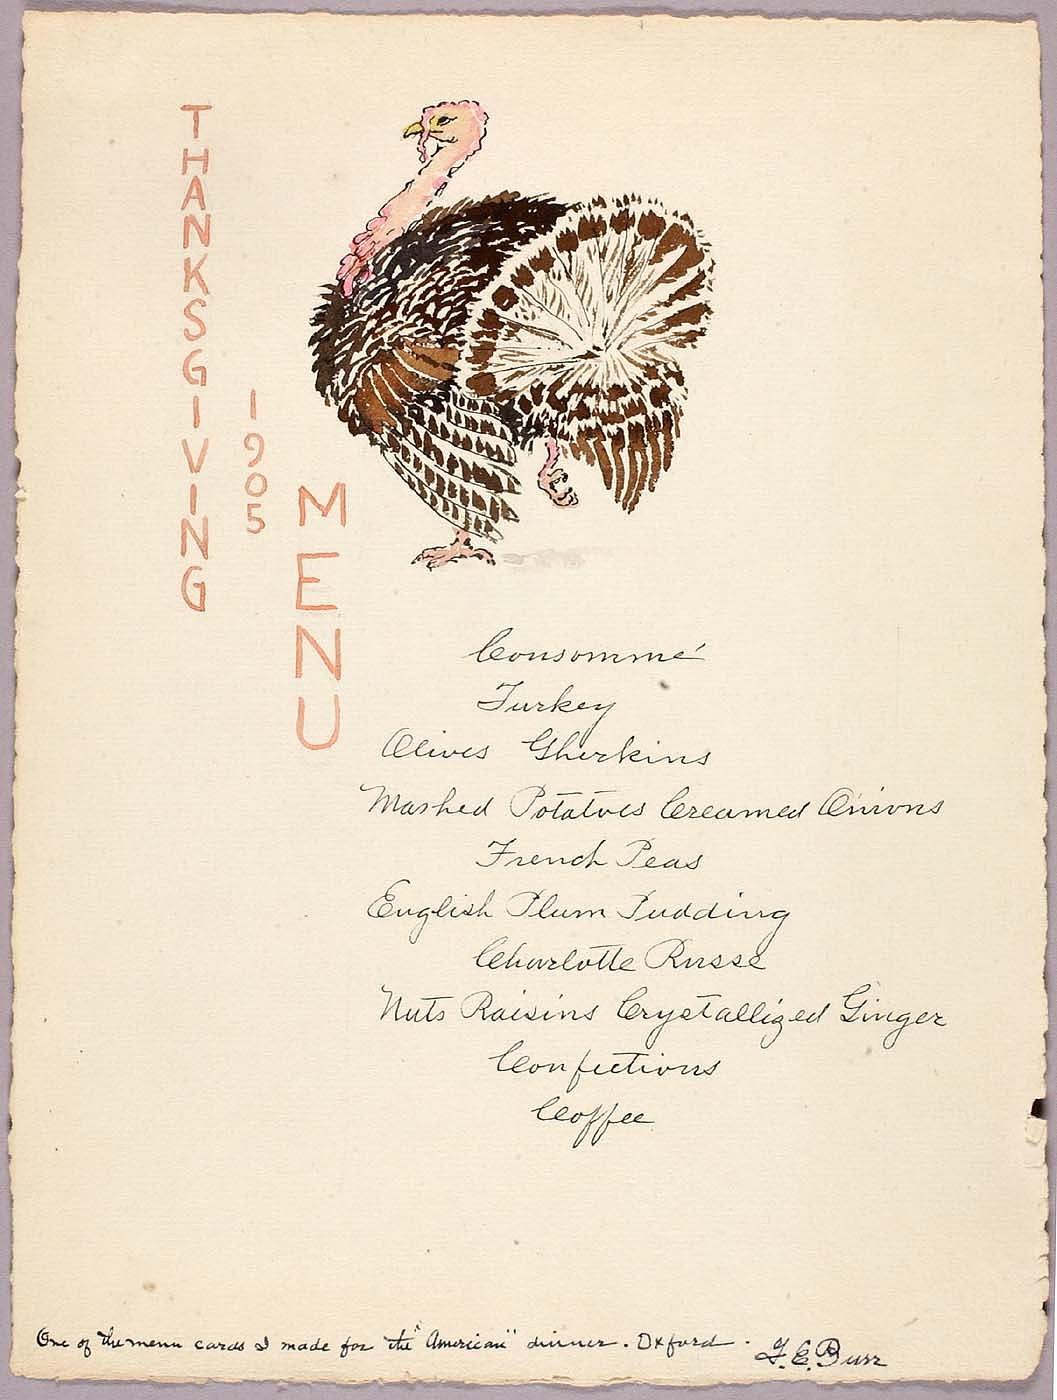 THANKSGIVING
1905
MENU
Consommé
Turkey
Olives Gherkins
Mashed Potatoes Creamed Onions
French Peas
English Plum Pudding
Charlotte Russe
Nuts Raisins Crystallized Ginger
Confections
Coffee
One of the menu cards I made for the "American" dinner. Oxford. G. E. Burr